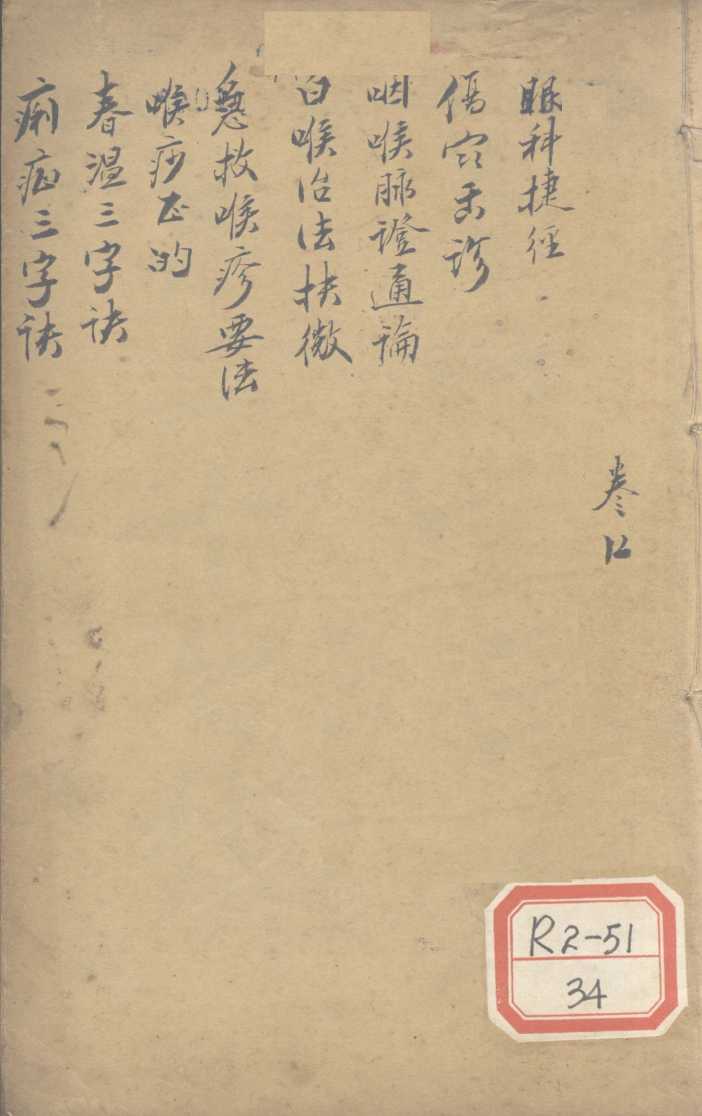 眼科捷徑
傷寒舌診
咽喉脉證通論
白喉治法抉微
急救喉疹要法
喉痧正的
春溫三字訣
痢症三字訣
卷12
R2-51
34